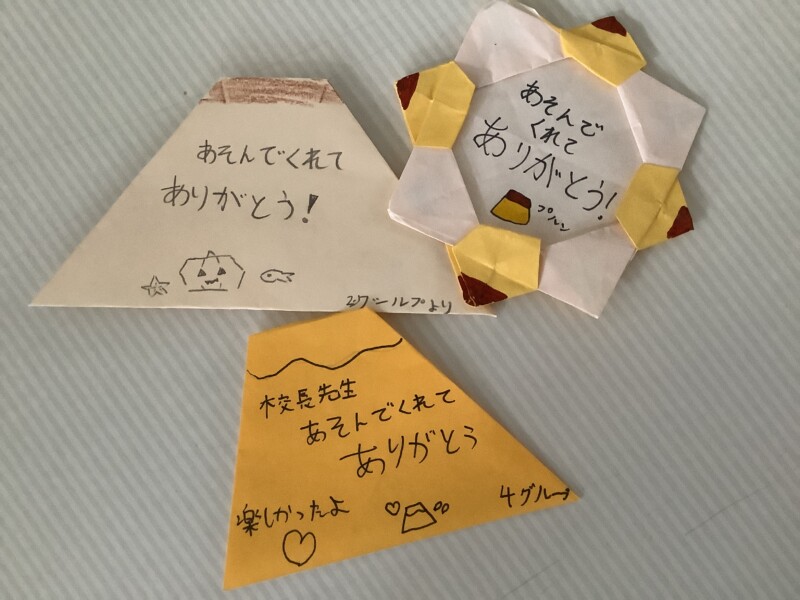 あそんでくれて
ありがとう!
2グールプより
あそんで
くれて
ありがとう!
プルン
校長先生
あそんでくれて
ありがとう
楽しかったよ
4グループ